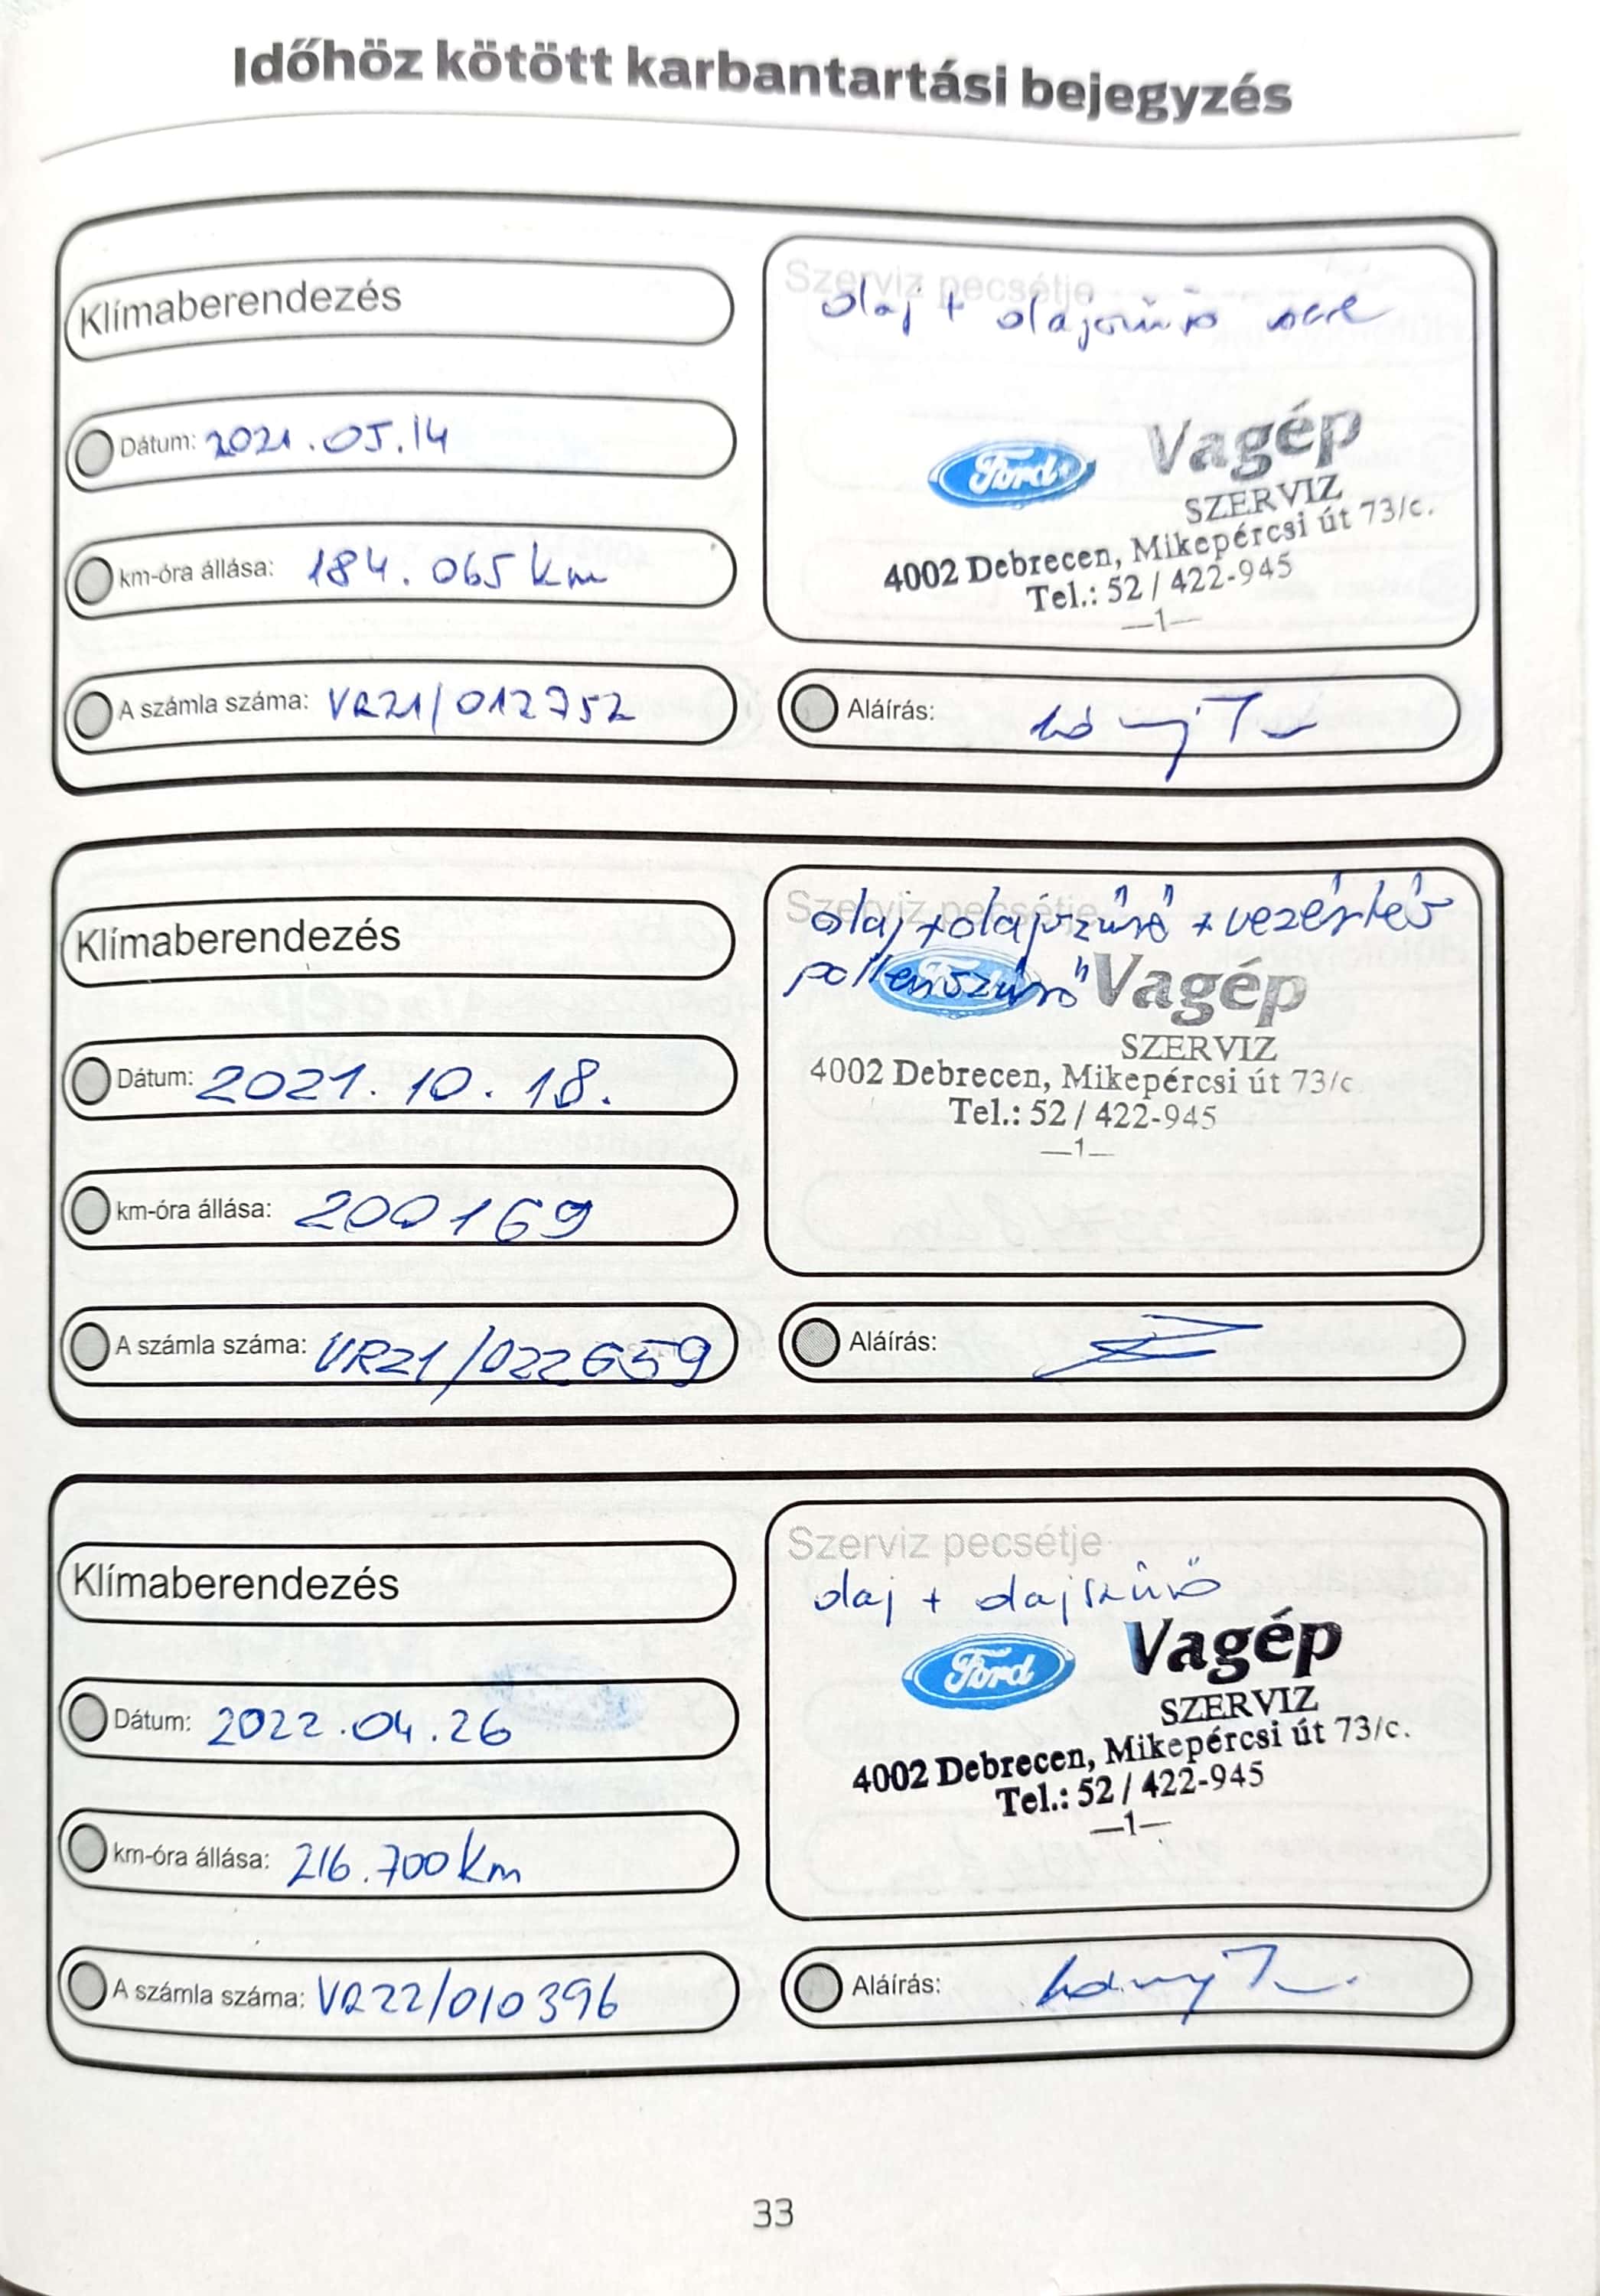 Időhöz kötött karbantartási bejegyzés
Klímaberendezés
Dátum: 2021.05.14
km-óra állása: 184.065 km
A számla száma: VR21/012752
Szerviz pecsétje
olaj + olajszűrő csere
Ford Vagép
SZERVIZ
4002 Debrecen, Mikepércsi út 73/c.
Tel.: 52 / 422-945
—1—
Aláírás:
Klímaberendezés
Dátum: 2021. 10. 18.
km-óra állása: 200169
A számla száma: VR21/022659
Szerviz pecsétje
olaj + olajszűrő + vezérlés
pollenszűrő
Ford Vagép
SZERVIZ
4002 Debrecen, Mikepércsi út 73/c
Tel.: 52 / 422-945
—1—
Aláírás:
Klímaberendezés
Dátum: 2022.04.26
km-óra állása: 216.700 km
A számla száma: VR22/010396
Szerviz pecsétje
olaj + olajszűrő
Ford Vagép
SZERVIZ
4002 Debrecen, Mikepércsi út 73/c.
Tel.: 52 / 422-945
—1—
Aláírás:
33